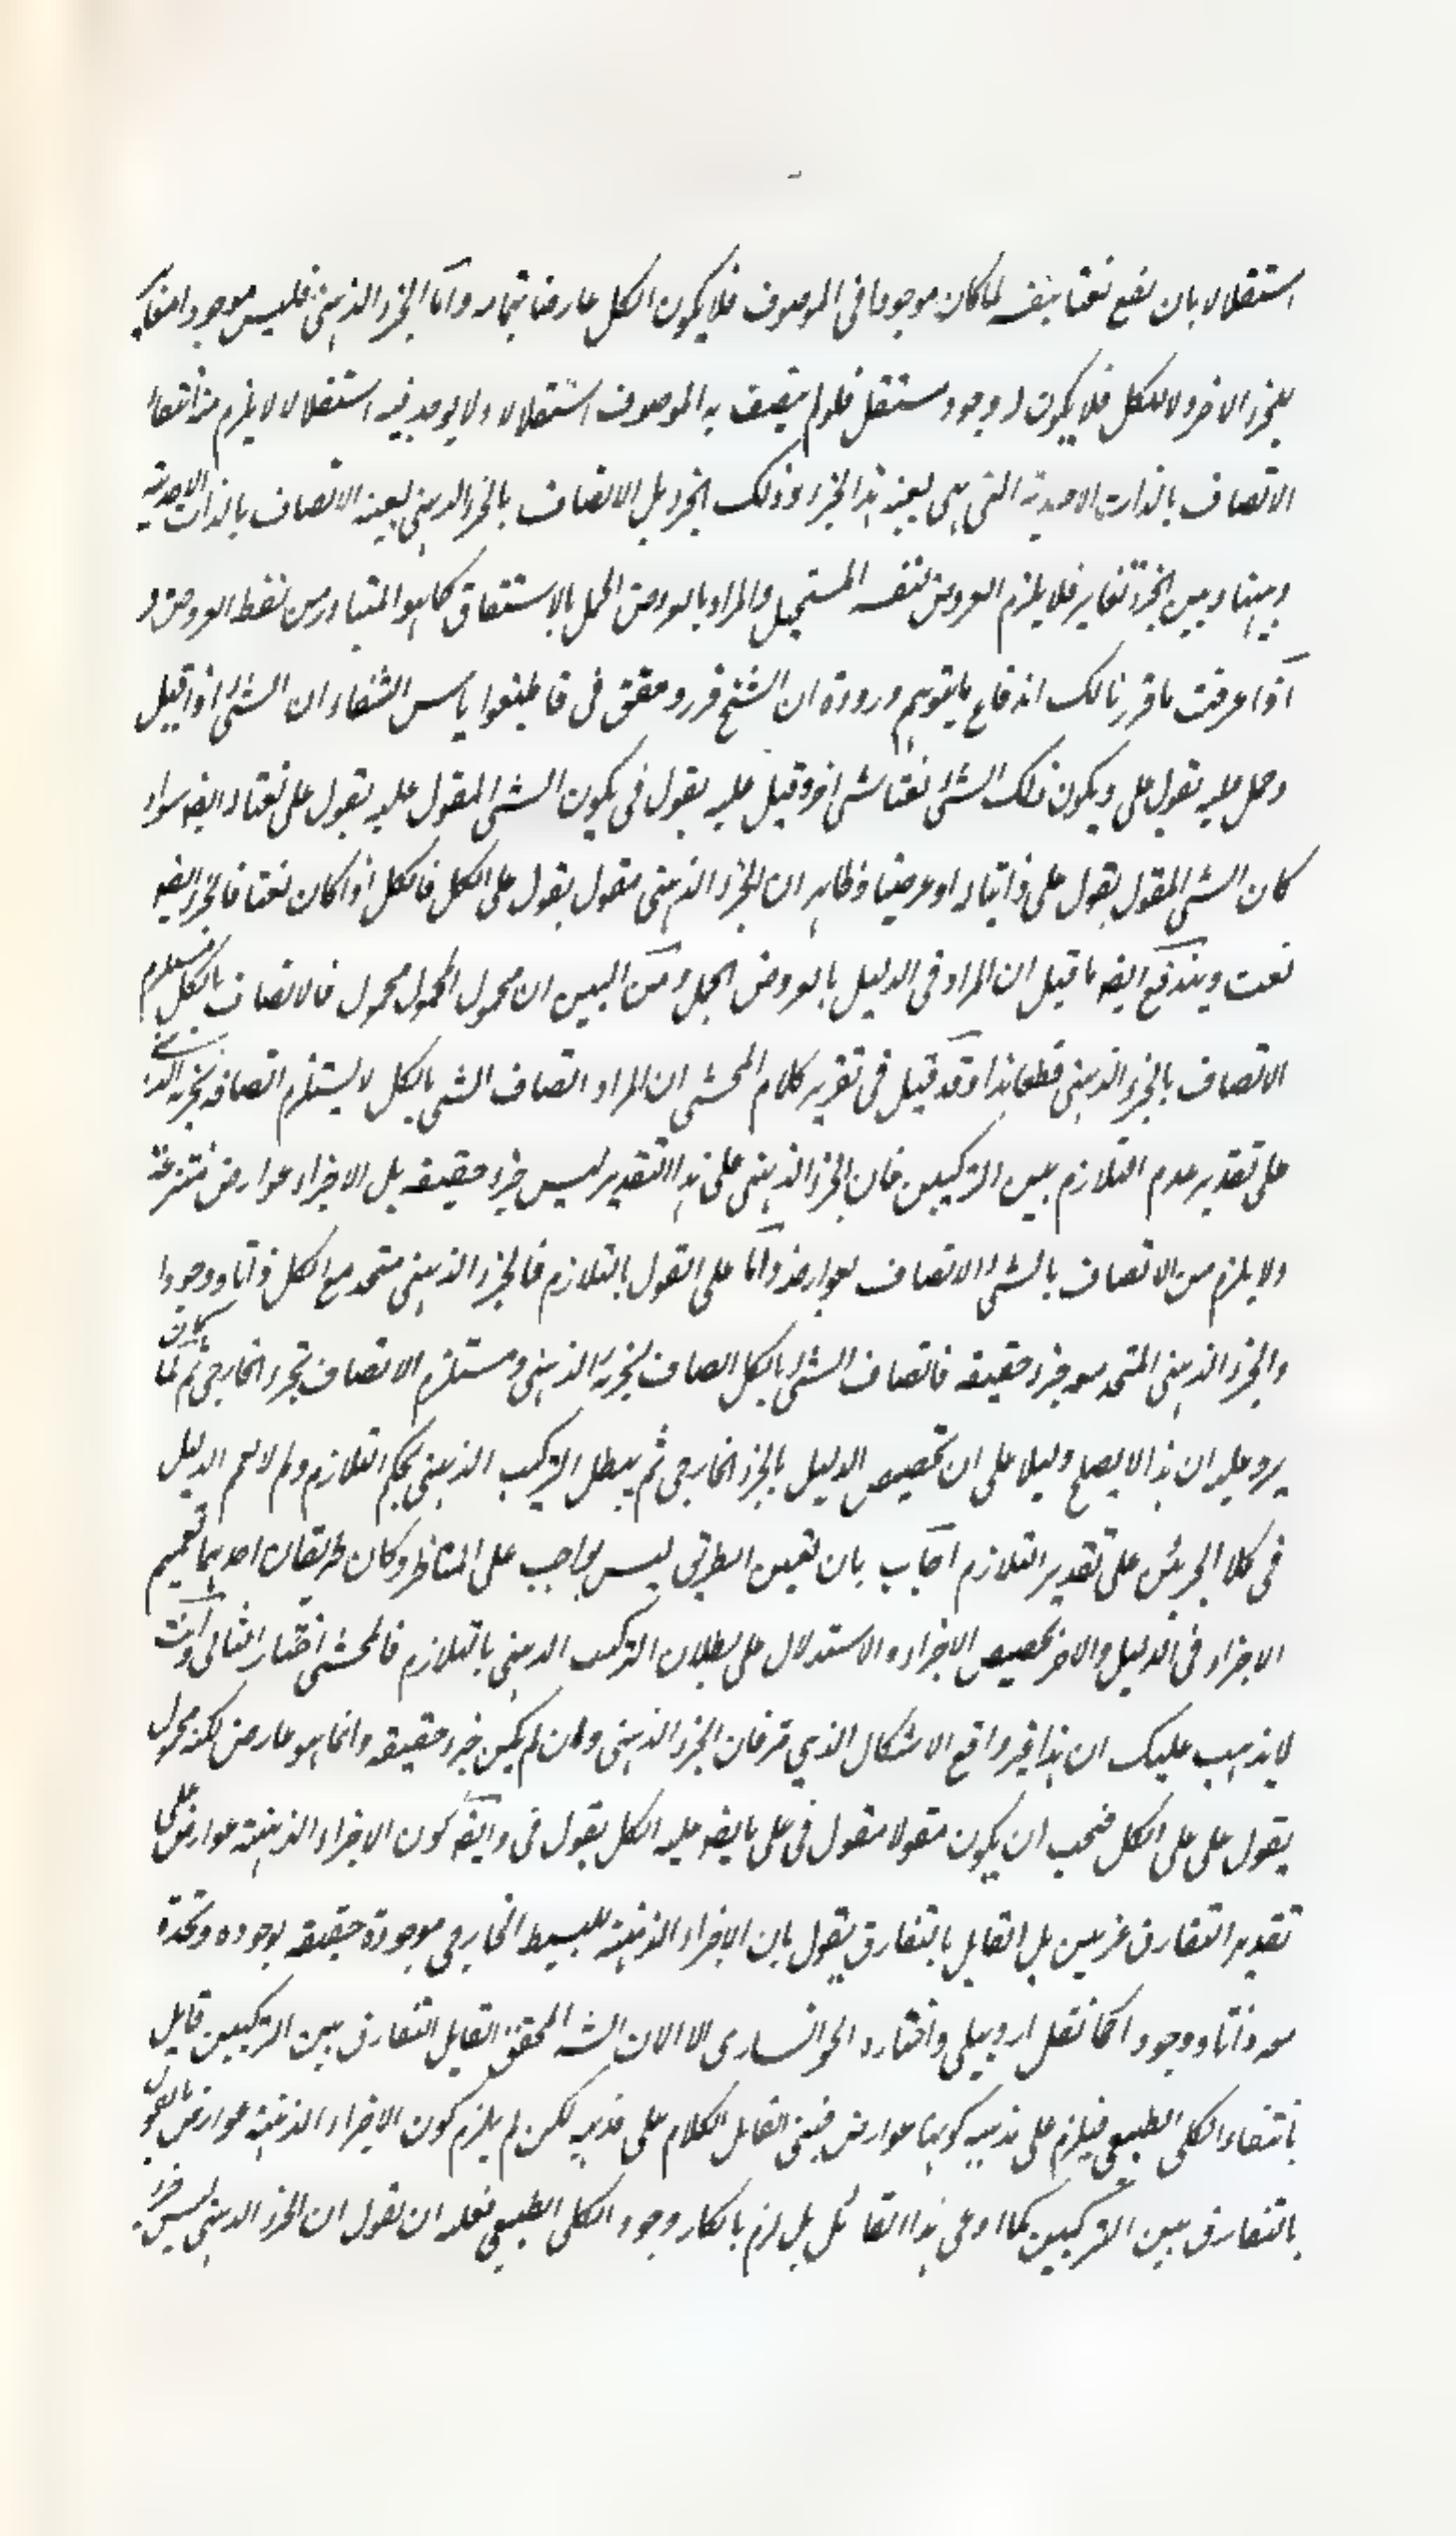 استقلالا بان يقع نعتا بنفسه لما كان موجودا فى الموصوف فلا يكون الكل عارضا بتمامه واما الجزء الذهنى فليس موجودا مغايرا
للجزء الاخر ولا للكل فلا يكون له وجود مستقل فلو لم يتصف به الموصوف استقلالا ولا يوجد فيه استقلالا لا يلزم منه انتفاء
الاتصاف بالذات الاحدية التى هى بعينه هذا الجزء وذلك الجزء بل الاتصاف بالجزء الذهنى بعينه الاتصاف بالذات الاحدية
وبينها وبين الجزء تغاير فلا يلزم العروض لنفسه المستحيل والمراد بالعروض الحمل بالاشتقاق كما هو المتبادر من لفظ العروض و
اذا عرفت ما قررنا لك اندفاع ما يتوهم وروده ان الشيخ قرر وحقق فى قاطيغورياس الشفاء ان الشئ اذا قيل
وحمل عليه بقول على ويكون ذلك الشئ نعتا لشئ اخر وقيل عليه بقول فى يكون الشئ المقول عليه بقول على نعتا له ايضا سواء
كان الشئ المقول بقول على ذاتيا له او عرضيا وظاهر ان الجزء الذهنى مقول بقول على الكل فالكل اذا كان نعتا فالجزء ايضا
نعت ويندفع ايضا ما قيل ان المراد فى الدليل بالعروض الحمل ومن البين ان محمول المحمول محمول فالاتصاف بالكل مستلزم
الاتصاف بالجزء الذهنى قطعا هذا وقد قيل فى تقرير كلام المحشى ان المراد اتصاف الشئ بالكل لا يستلزم اتصافه بجزئه الذهنى
على تقدير عدم التلازم بين التركيبين فان الجزء الذهنى على هذا التقدير ليس جزء حقيقة بل الاجزاء عوارض منتزعة
ولا يلزم من الاتصاف بالشئ الاتصاف بعوارضه واما على القول بالتلازم فالجزء الذهنى متحد مع الكل ذاتا ووجودا
والجزء الذهنى المتحد هو جزء حقيقة فاتصاف الشئ بالكل اتصاف بجزئه الذهنى ومستلزم الاتصاف بجزء الخارجى ثم لما كان
يرد عليه ان هذا لا يصلح دليلا على ان تخصيص الدليل بالجزء الخارجى ثم يبطل التركيب الذهنى بحكم التلازم ولم لا يعم الدليل
فى كلا الجزئين على تقدير التلازم اجاب بان تعيين الطريق ليس بواجب على المناظر وكان طريقان احدهما تعميم
الاجزاء فى الدليل والاخر تخصيص الاجزاء والاستدلال على بطلان التركيب الذهنى بالتلازم فالمحشى اختار الثانى وانت
لا يذهب عليك ان هذا غير واقع الاشكال الذى مر فان الجزء الذهنى وان لم يكن جزء حقيقة وانما هو عارض لكنه محمول
بقول على على الكل فيجب ان يكون مقولا مقول فى على ما يقه عليه الكل بقول فى وايضا كون الاجزاء الذهنية عوارض على
تقدير التفارق غير بين بل القايل بالتفارق يقول بان الاجزاء الذهنية للبسيط الخارجى موجودة حقيقة بوجوده ومتحدة
معه ذاتا ووجودا كما نقل اردبيلى واختاره الخوانسارى الا الان الشه المحقق القايل التفارق بين التركيبين قايل
بانتفاء الكلى الطبيعى فيلزم على مذهبه كونها عوارض فبنى القايل الكلام على مذهبه لكن لم يلزم كون الاجزاء الذهنية عوارض بالقول
بالتفارق بين التركيبين كما ادعى هذا القائل بل لزم بانكار وجود الكلى الطبيعى فعله ان يقول ان الجزء الذهنى ليس جزء